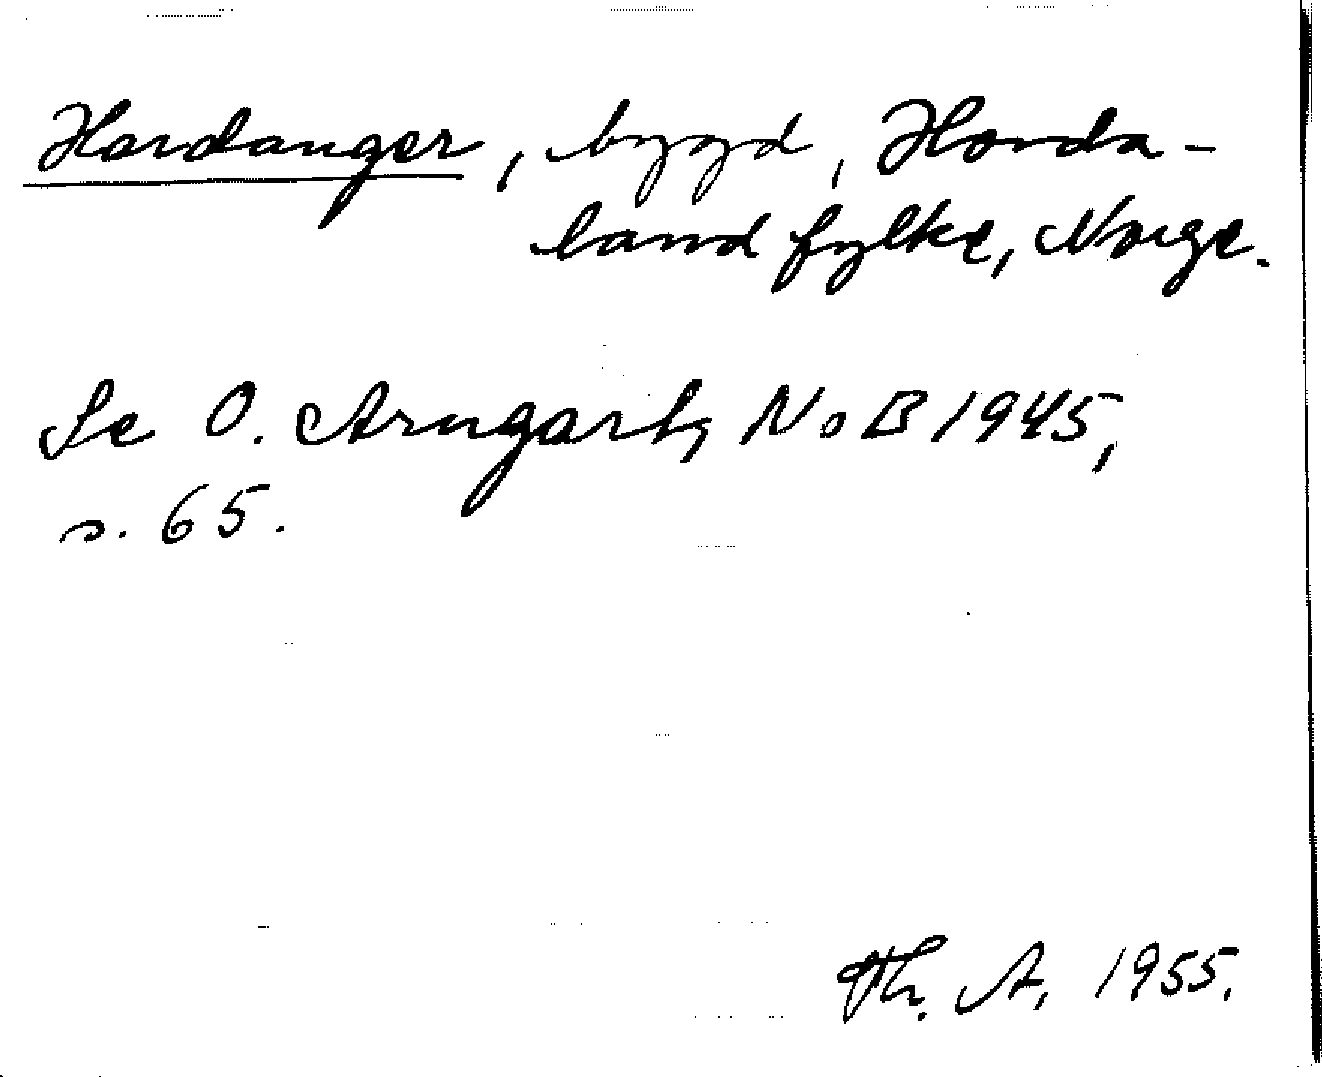 Hardanger, bygd, Horda-
land fylke, Norge.
Se O. Arngart, NoB 1945,
s. 65.
Th. A. 1955.